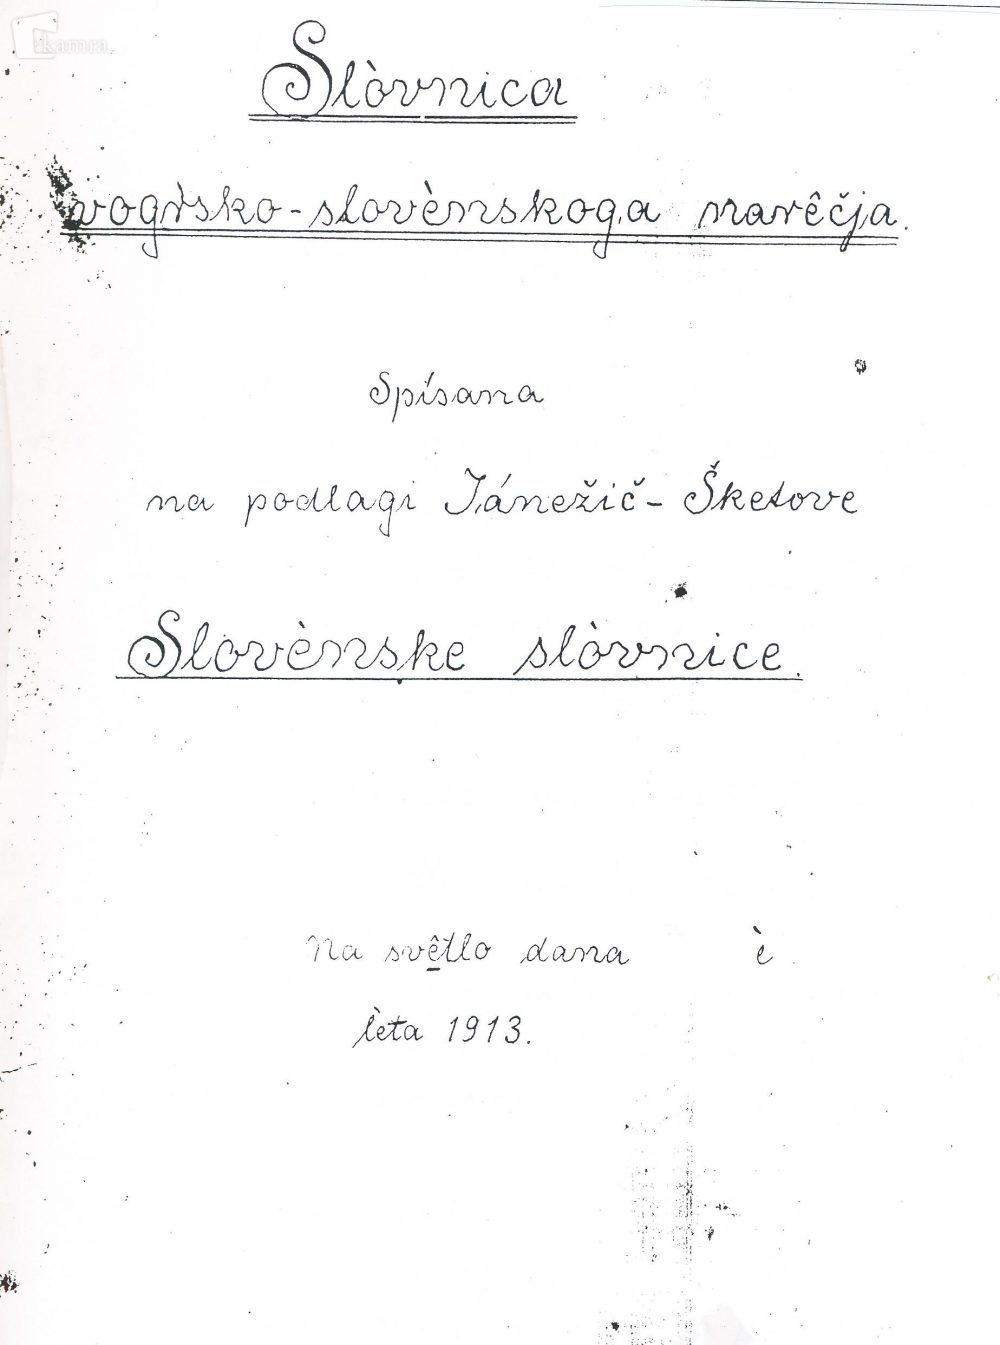 kamra
Slòvnica
vogrsko-slovènskoga narêčja.
Spísana
na podlagi Jánežič-Šketove
Slovènske slòvnice.
Na svêtlo dana è
lèta 1913.